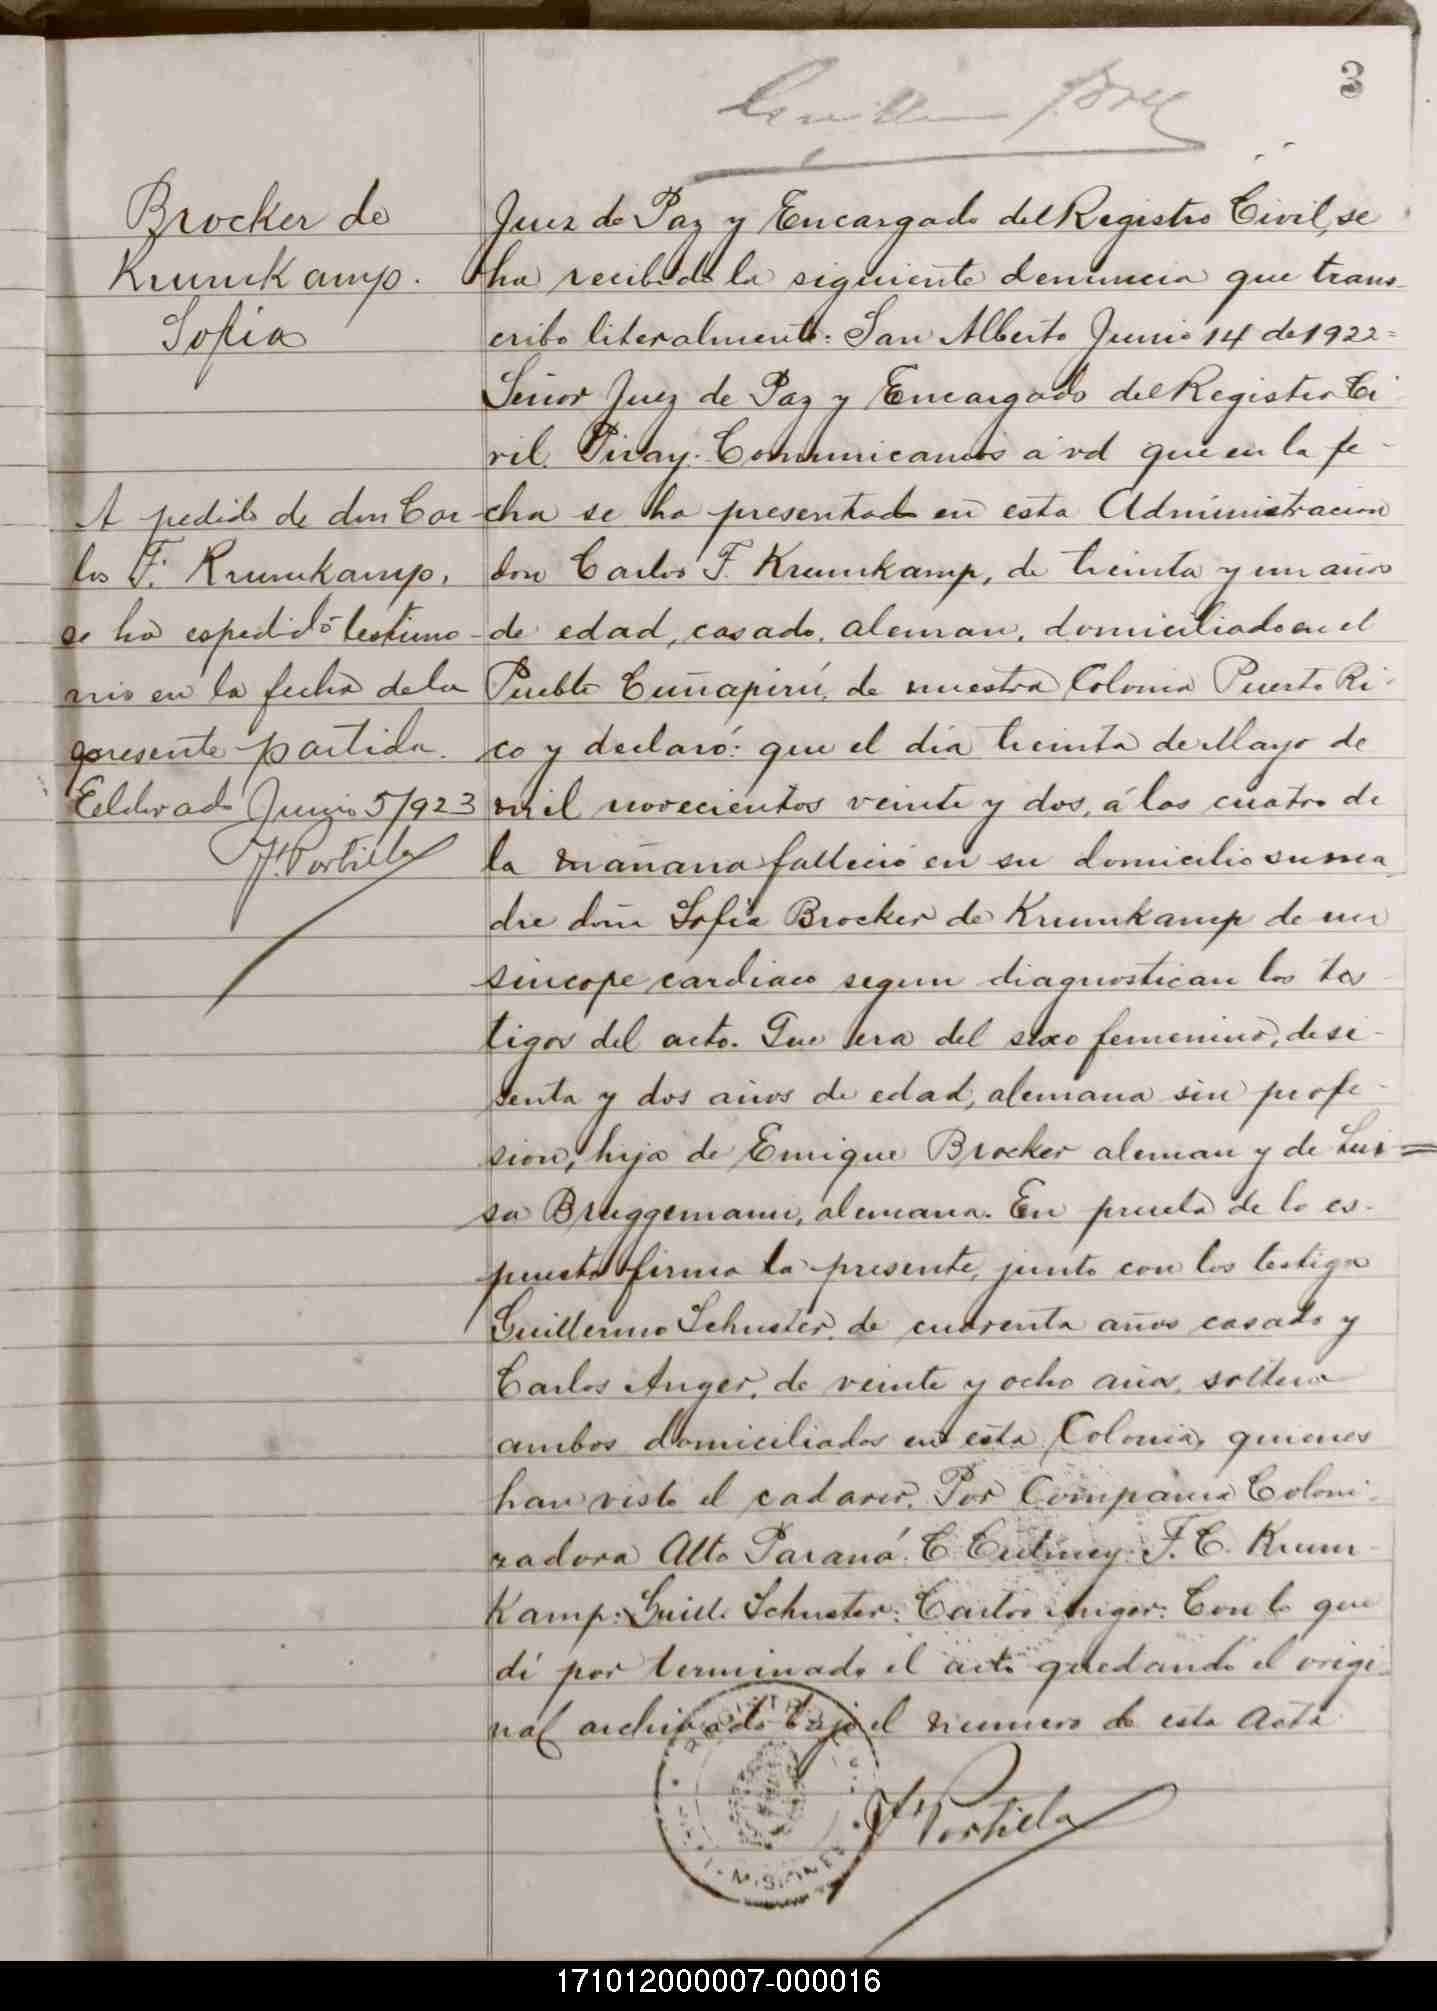 3
Brocker de
Krumkamp.
Sofia
A pedido de don Car-
los F. Krumkamp,
se ha espedido testimo-
nio en la fecha de la
presente partida.
Eldorado Junio 5/923
J. Portilla
Juez de Paz y Encargado del Registro Civil, se
ha recibido la siguiente denuncia que trans-
cribo literalmente: San Alberto Junio 14 de 1922=
Señor Juez de Paz y Encargado del Registro Ci
vil. Piray. Comunicamos á vd que en la fe-
cha se ha presentado en esta Administracion
don Carlos F. Krumkamp, de treinta y un años
de edad, casado, aleman, domiciliado en el
Pueblo Cuñapirú, de nuestra Colonia Puerto Ri-
co y declaró: que el día treinta de Mayo de
mil novecientos veinte y dos, á las cuatro de
la mañana falleció en su domicilio su ma
dre doña Sofia Brocker de Krumkamp de un
sincope cardiaco segun diagnostican los tes-
tigos del acto. Que era del sexo femenino, de se-
senta y dos años de edad, alemana sin profe-
sion, hija de Enrique Brocker aleman y de Lui=
sa Bruggemann, alemana. En prueba de lo es-
puesto firma la presente, junto con los testigos
Guillermo Schuster, de cuarenta años casado y
Carlos Anger, de veinte y ocho años, soltero
ambos domiciliados en esta Colonia, quienes
han visto el cadaver. Por Compania Coloni-
zadora Alto Paraná. C. F. C. Krum-
kamp: Guill Schuster: Carlos Anger: Con lo que
dí por terminado el acto quedando el origi-
nal archivado bajo el numero de esta Acta
J. Portilla
MISIONES
171012000007-000016